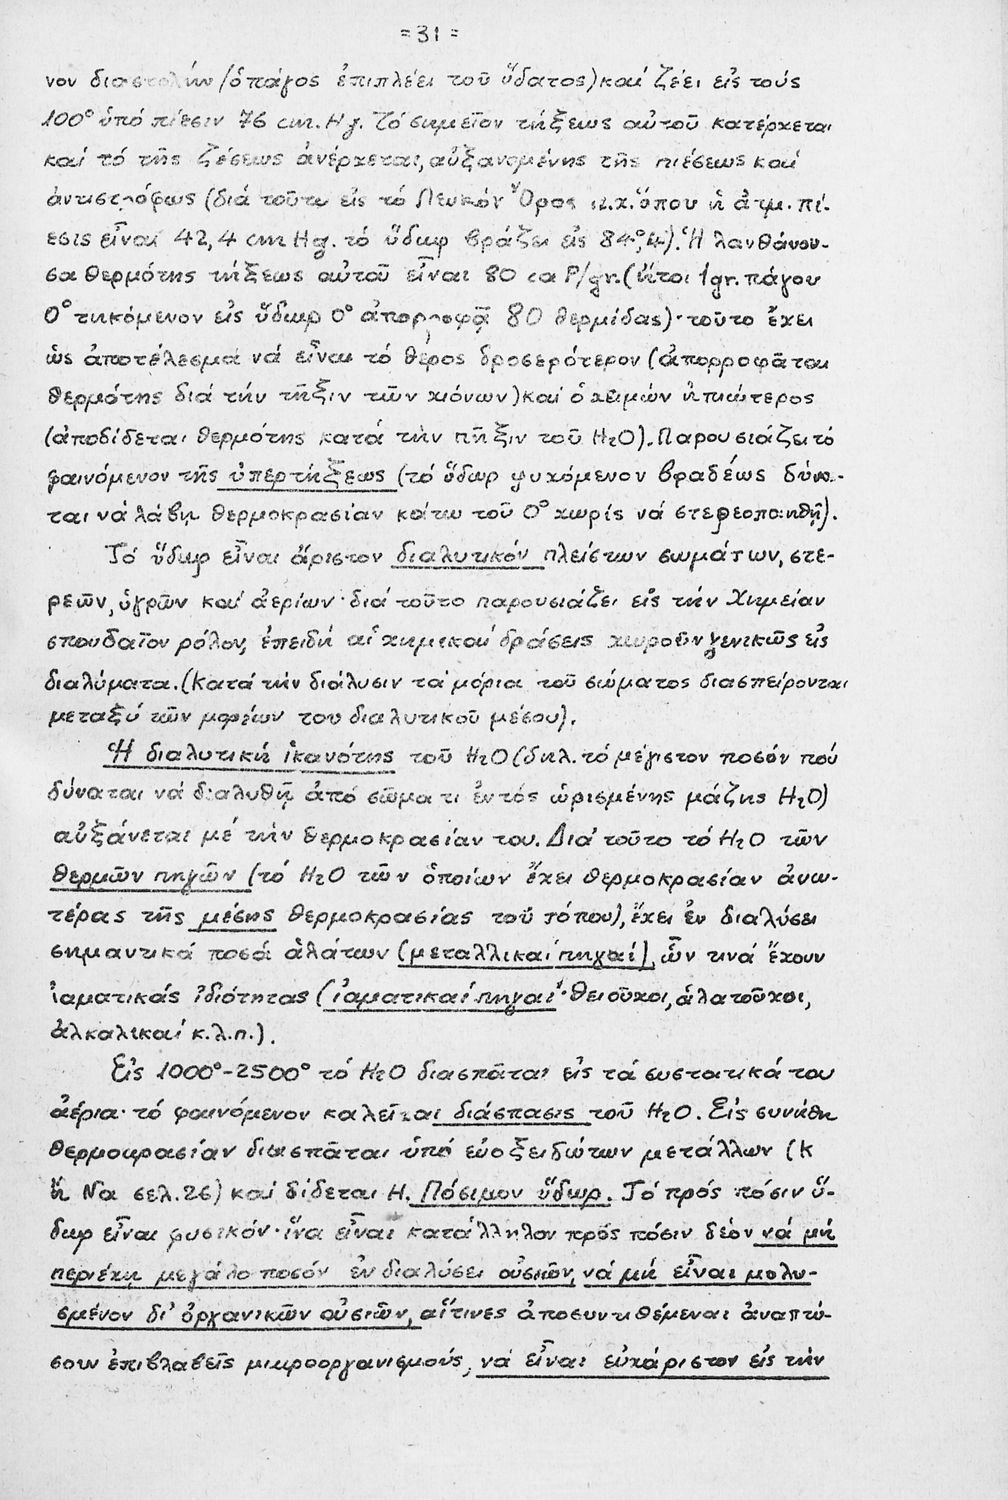 =31=
νον διαστολήν (ὁ πάγος ἐπιπλέει τοῦ ὕδατος) καί ζέει εἰς τούς
100° ὑπό πίεσιν 76 cm. Hg. Τό σημεῖον τήξεως αὐτοῦ κατέρχεται
καί τό τῆς ζέσεως ἀνέρχεται, αὐξανομένης τῆς πιέσεως καί
ἀντιστρόφως (διά τοῦτο εἰς τό Λευκόν Ὄρος π.χ. ὅπου ἡ ἀτμ. πί-
εσις εἶναι 42,4 cm Hg. τό ὕδωρ βράζει εἰς 84°,4). Ἡ λανθάνου-
σα θερμότης τήξεως αὐτοῦ εἶναι 80 cal/gr. (ἤτοι 1gr. πάγου
0° τηκόμενον εἰς ὕδωρ 0° ἀπορροφᾷ 80 θερμίδας)· τοῦτο ἔχει
ὡς ἀποτέλεσμα νά εἶναι τό θέρος δροσερότερον (ἀπορροφᾶται
θερμότης διά τήν τῆξιν τῶν χιόνων) καί ὁ χειμών ἠπιώτερος
(ἀποδίδεται θερμότης κατά τήν πῆξιν τοῦ H2O). Παρουσιάζει τό
φαινόμενον τῆς ὑπερτήξεως (τό ὕδωρ ψυχόμενον βραδέως δύνα-
ται νά λάβῃ θερμοκρασίαν κάτω τοῦ 0° χωρίς νά στερεοποιηθῇ).
Τό ὕδωρ εἶναι ἄριστον διαλυτικόν πλείστων σωμάτων, στε-
ρεῶν, ὑγρῶν καί ἀερίων· διά τοῦτο παρουσιάζει εἰς τήν Χημείαν
σπουδαῖον ρόλον, ἐπειδή αἱ χημικαί δράσεις χωροῦν γενικῶς εἰς
διαλύματα. (Κατά τήν διάλυσιν τά μόρια τοῦ σώματος διασπείρονται
μεταξύ τῶν μορίων του διαλυτικοῦ μέσου).
Ἡ διαλυτική ἱκανότης τοῦ H2O (δηλ. τό μέγιστον ποσόν πού
δύναται νά διαλυθῇ ἀπό σῶμα τι ἐντός ὡρισμένης μάζης H2O)
αὐξάνεται μέ τήν θερμοκρασίαν του. Διά τοῦτο τό H2O τῶν
θερμῶν πηγῶν (τό H2O τῶν ὁποίων ἔχει θερμοκρασίαν ἀνω-
τέρας τῆς μέσης θερμοκρασίας τοῦ τόπου), ἔχει ἐν διαλύσει
σημαντικά ποσά ἁλάτων (μεταλλικαί πηγαί), ὧν τινά ἔχουν
ἰαματικάς ἰδιότητας (ἰαματικαί πηγαί· θειοῦχοι, ἁλατοῦχοι,
ἀλκαλικαί κ.λ.π.).
Εἰς 1000°-2500° τό H2O διασπᾶται εἰς τά συστατικά του
ἀέρια· τό φαινόμενον καλεῖται διάσπασις τοῦ H2O. Εἰς συνήθη
θερμοκρασίαν διασπᾶται ὑπό εὐοξειδώτων μετάλλων (K
ἤ Na σελ. 26) καί δίδεται H. Πόσιμον ὕδωρ. Τό πρός πόσιν ὕ-
δωρ εἶναι φυσικόν· ἵνα εἶναι κατάλληλον πρός πόσιν δέον νά μή
περιέχῃ μεγάλο ποσόν ἐν διαλύσει οὐσιῶν, νά μή εἶναι μολυ-
σμένον δι' ὀργανικῶν οὐσιῶν, αἵτινες ἀποσυντιθέμεναι ἀναπτύ-
σουν ἐπιβλαβεῖς μικροοργανισμούς, νά εἶναι εὐχάριστον εἰς τήν